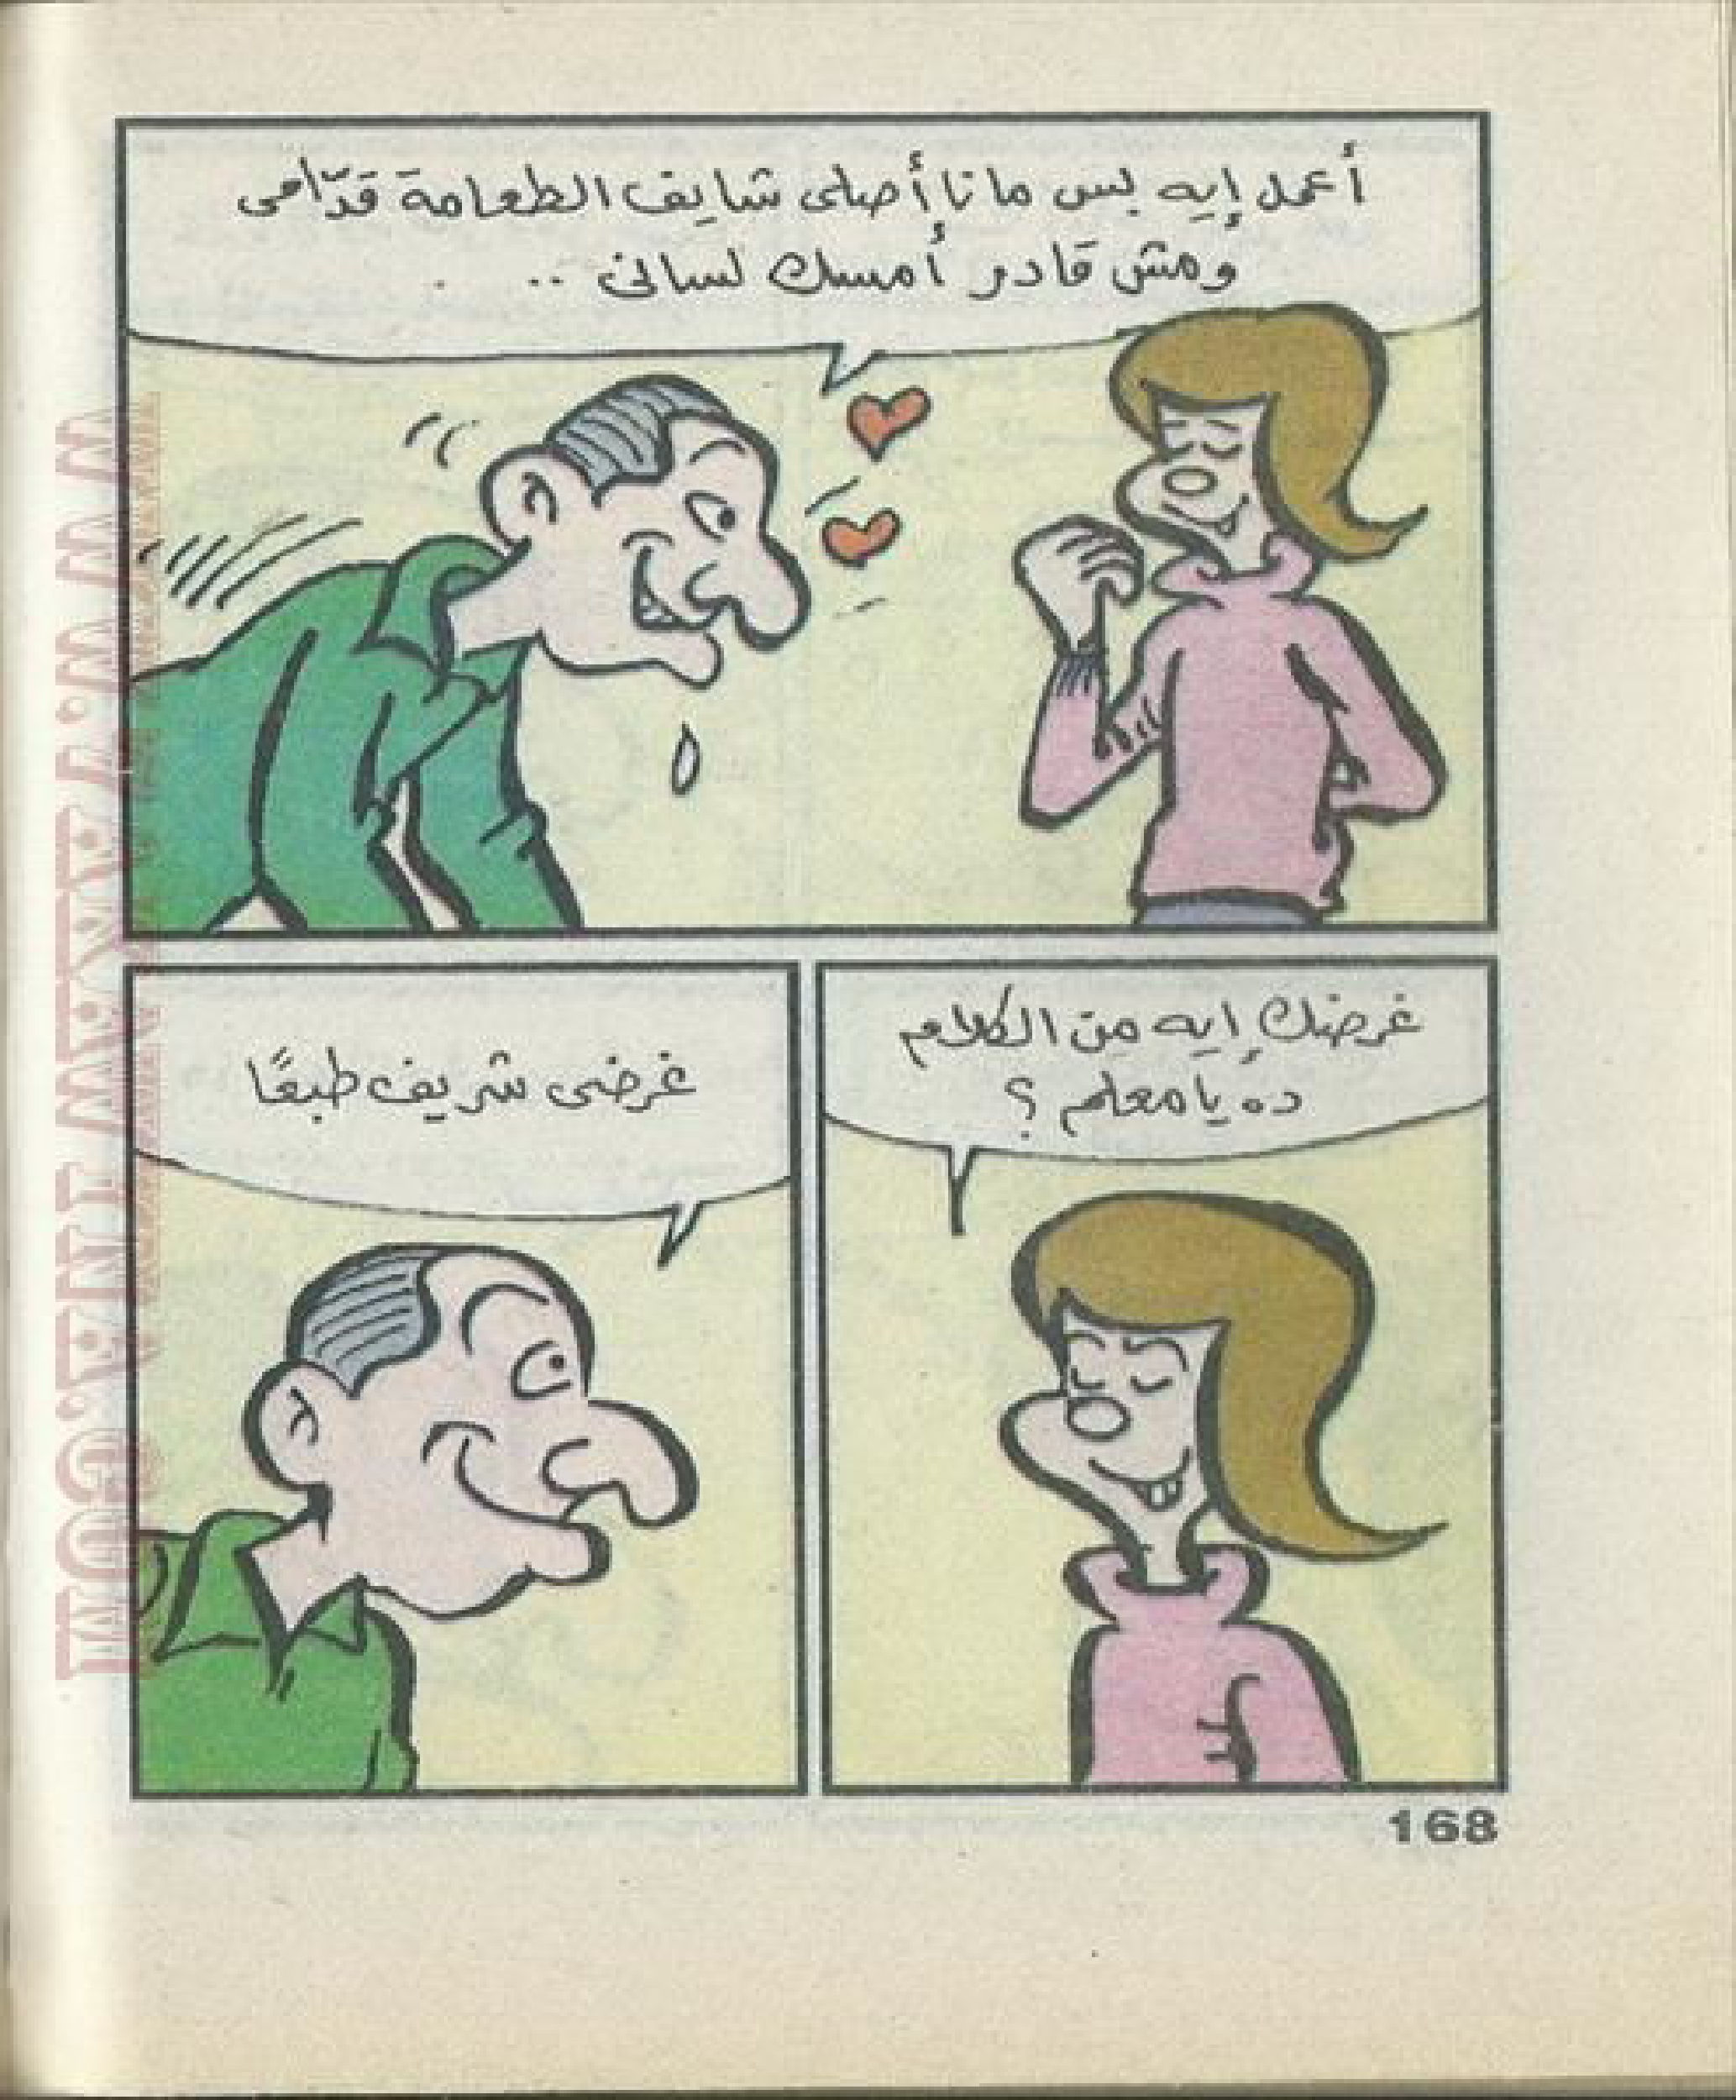 أعمل إيه بس ما نا أصلى شايف الطعامة قدّامى
ومش قادر أمسك لسانى ..
غرضك إيه من الكلام
ده يا معلم ؟
غرضى شريف طبعًا
168
WWW.ARABWINGS.COM